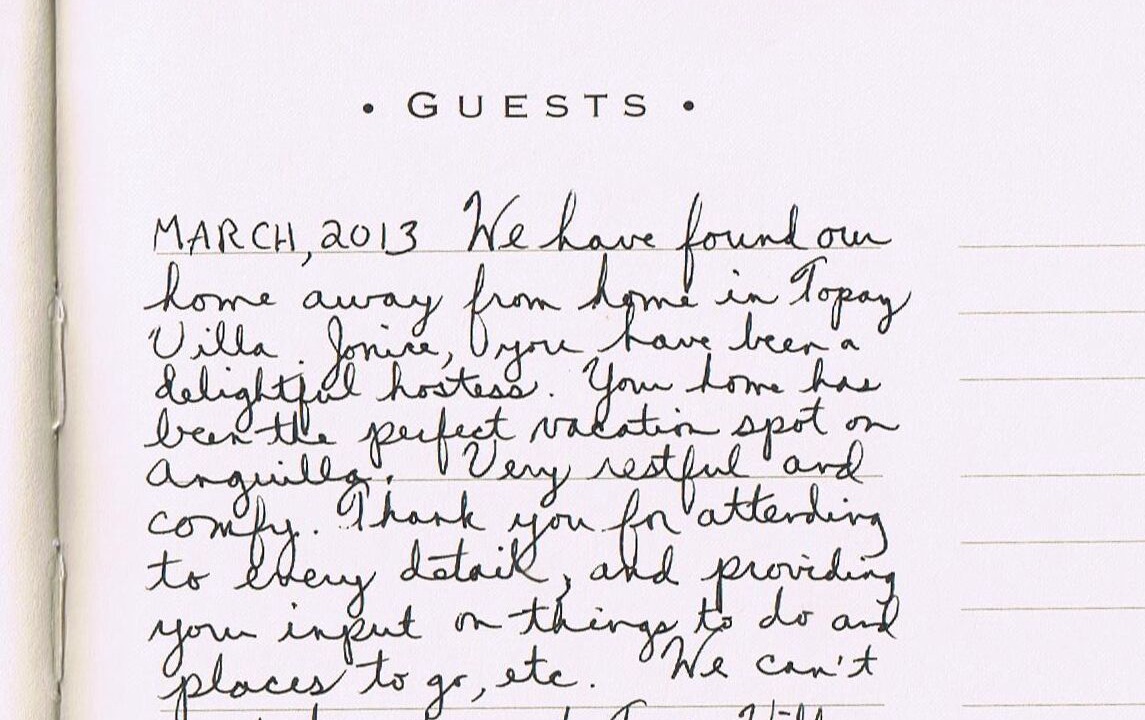 • GUESTS •
MARCH, 2013 We have found our
home away from home in Topaz
Villa. Jonice, you have been a
delightful hostess. Your home has
been the perfect vacation spot on
Anguilla. Very restful and
comfy. Thank you for attending
to every detail, and providing
your input on things to do and
places to go, etc. We can't